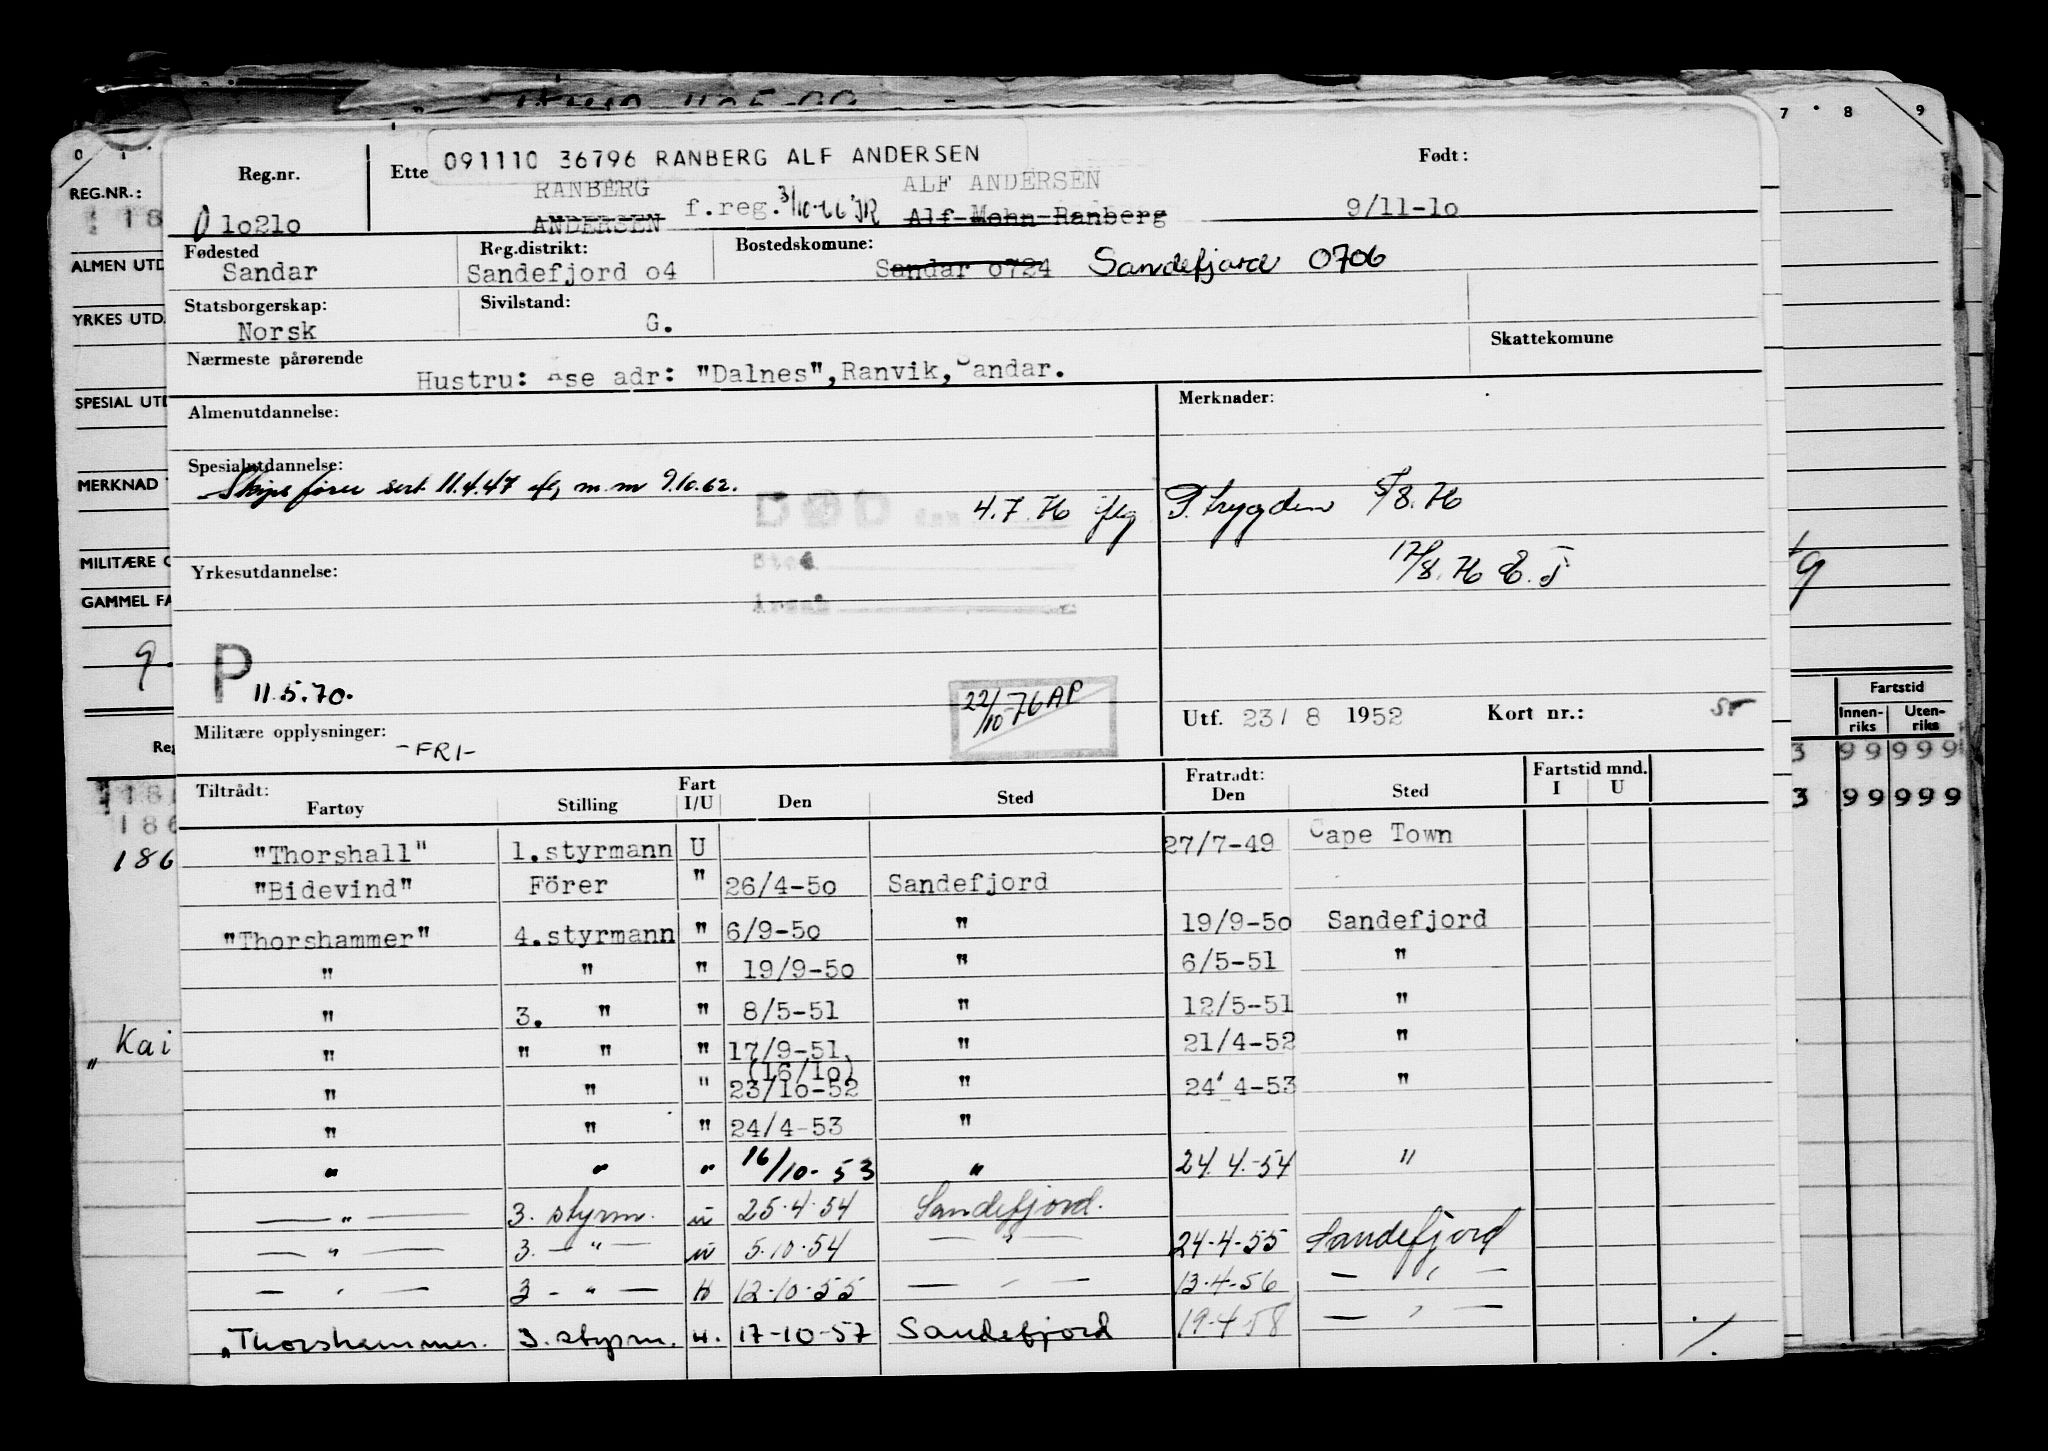 091110 36796 RANBERG ALF ANDERSEN
Reg.nr. Ette Født:
RANBERG ALF ANDERSEN
O 1o21o ANDERSEN f.reg. 3/10-66 JR Alf Mohn Ranberg 9/11-1o
Fødested Reg.distrikt: Bostedskomune:
Sandar Sandefjord o4 Sandar o724 Sandefjord 0706
Statsborgerskap: Sivilstand:
Norsk G.
Nærmeste pårørende Skattekomune
Hustru: Ase adr: "Dalnes",Ranvik,Sandar.
Almenutdannelse: Merknader:
Spesialutdannelse:
Skipsfører sert. 11.4.47 m.m 9.10.62.
DØD den 4.7.76 iflg P.trygden 5/8.76
Sted
Yrkesutdannelse: 17/8.76
Årsak
P 11.5.70.
22/10-76 AP
Utf. 23/8 1952 Kort nr.:
Militære opplysninger: -FRI-
Tiltrådt: Fratrådt: Fartstid mnd.
Fartøy Stilling Fart I/U Den Sted Den Sted I U
"Thorshall" 1.styrmann U 27/7-49 Cape Town
"Bidevind" Förer " 26/4-5o Sandefjord
"Thorshammer" 4.styrmann " 6/9-5o " 19/9-5o Sandefjord
" " " 19/9-5o " 6/5-51 "
" 3. " " 8/5-51 " 12/5-51 "
" " " " 17/9-51 " 21/4-52 "
(16/1o)
" " " 23/1o-52 " 24/4-53 "
" " " 24/4-53 "
" " " 16/10-53 " 24.4.-54 "
— " — 3. styrm. u 25.4.54 Sandefjord.
— " — 3. — " — u 5.10.54 — " — 24.4.55 Sandefjord
— " — 3 — " — u 12.10.55 — " — 13.4.56 — " —
"Thorshammer. 3. styrm. u. 17-10-57 Sandefjord 19.4.58 — " — ./.
0 1
REG.NR.:
18
ALMEN UTD
YRKES UTD.
SPESIAL UTD
MERKNAD
MILITÆRE
GAMMEL FA
9
Reg
186
186
"Kai
7 8 9
Fartstid
Innen-riks Uten-riks
3 99 999
3 99 999